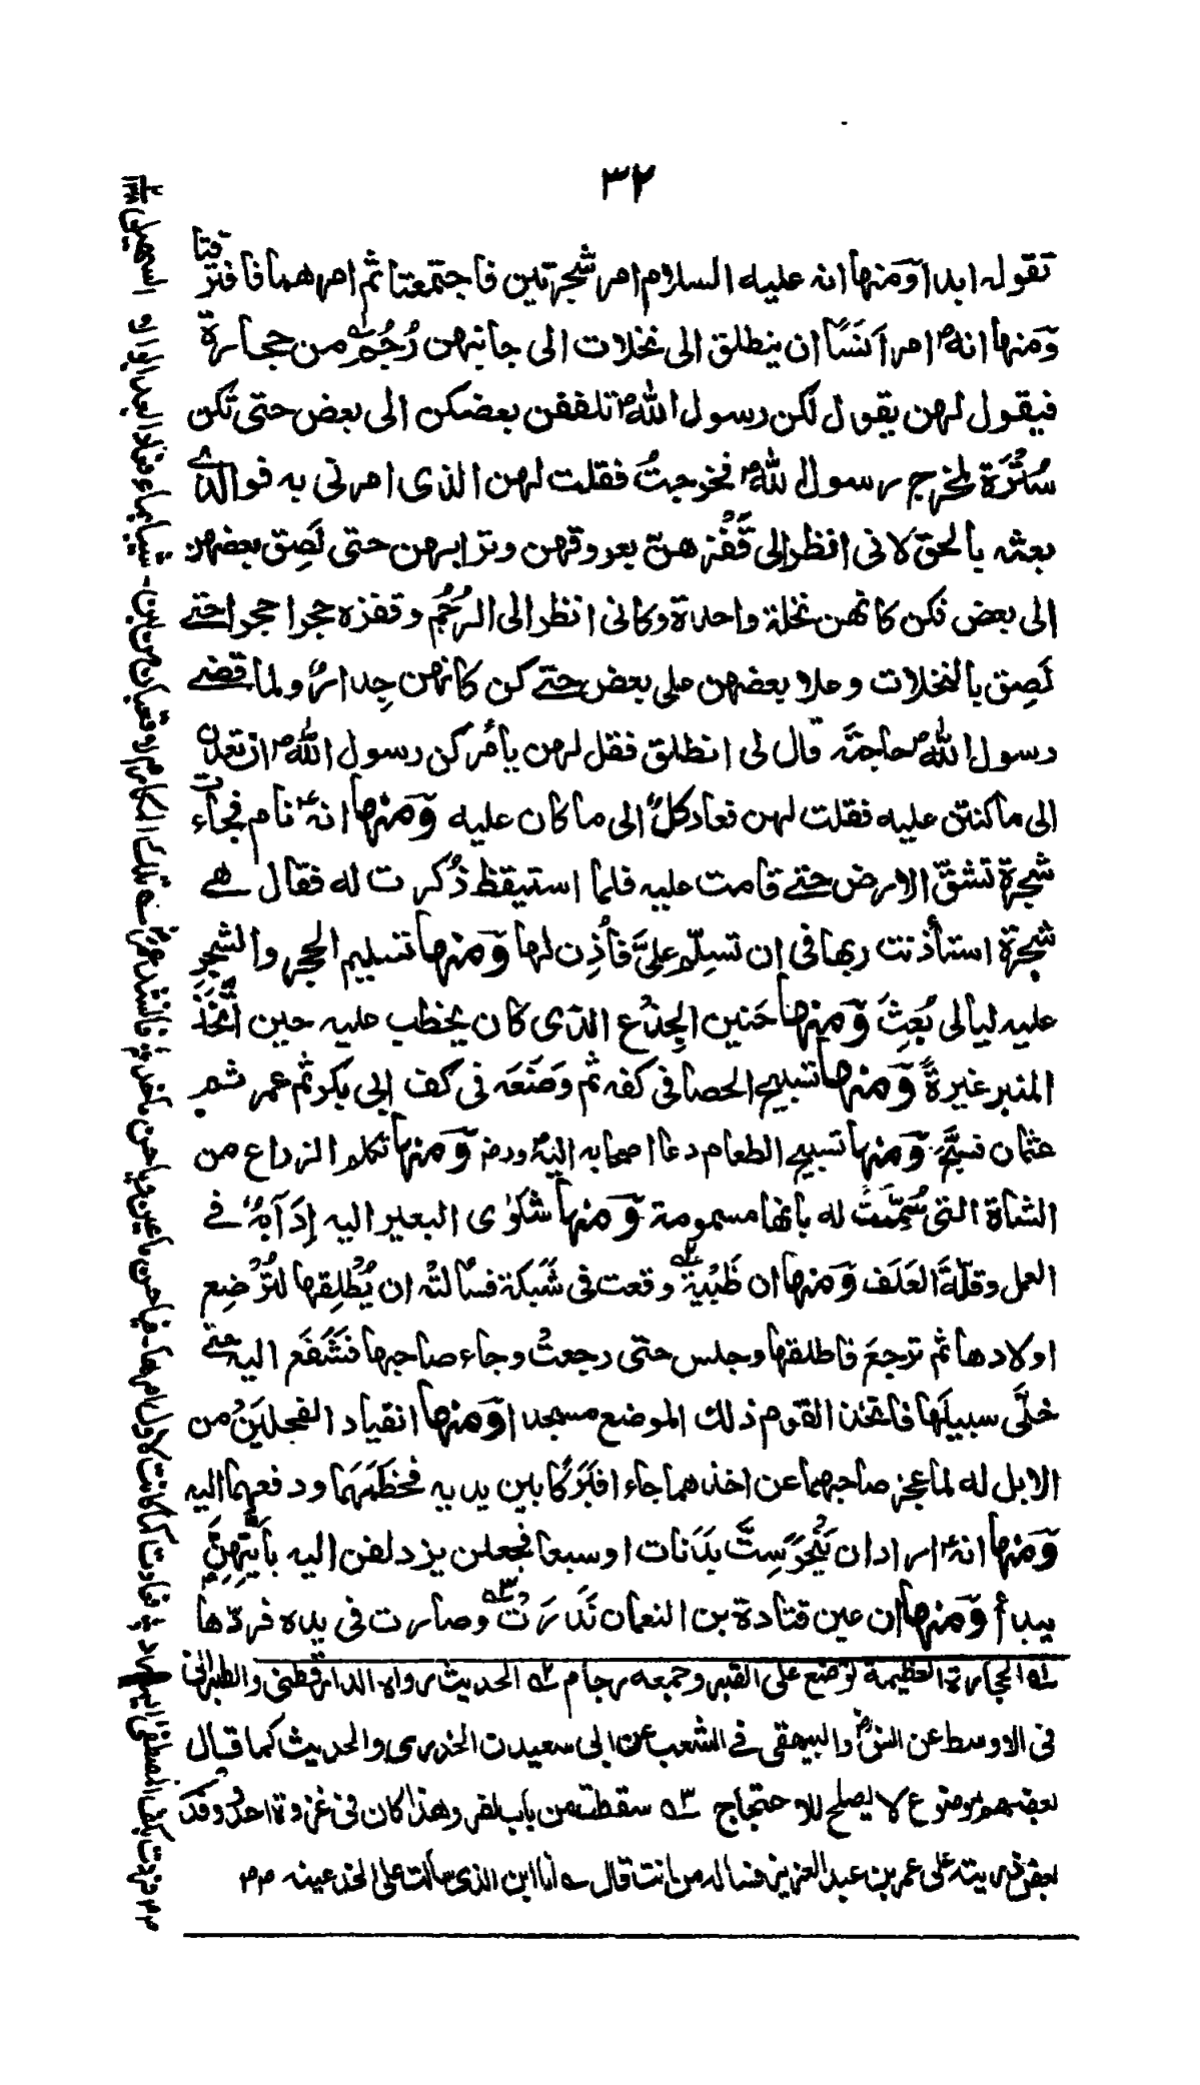 ٣٢
تقوله ابدا وَمنها انه عليه السلام امر شجرتين فاجتمعتا ثم امرهما فافترقتا
وَمنها انهؐ امر اَنَسًا ان ينطلق الى نخلات الى جانبهن رُجُمٌ من حجارة
فيقول لهن يقول لكن رسول اللهؐ تلففن بعضكن الى بعض حتى تكن
سُتْرَة لمخرج رسول اللهؐ فخرجتُ فقلت لهن الذى امرنى به فوالذى
بعثه بالحق لانى انظر الى قَفْزهنّ بعروقهن وترابهن حتى لَصِق بعضهن
الى بعض فكن كانهن نخلة واحدة وكانى انظر الى الرُجُم وقفزه حجرا حجرا حتى
لَصِق بالنخلات وعلا بعضهن على بعض حتى كن كانهن جِدارٌ ولما قضى
رسول اللهؐ حاجته قال لى انطلق فقل لهن يأمركن رسول اللهؐ ان تعدن
الى ما كنتن عليه فقلت لهن فعاد كلٌ الى ما كان عليه وَمنها انهؑ نام فجاءت
شجرة تشقّ الارض حتى قامت عليه فلما استيقظ ذُكرت له فقال هى
شجرة استأذنت ربها فى ان تسلّم علىَّ فأُذِن لها وَمنها تسليم الحجر والشجر
عليه ليالى بُعِثَ وَمنها حَنين الجِذع الذى كان يخطب عليه حين اتُّخِذ
المنبر غيرةً وَمنها تسبيح الحصا فى كفه ثم وَضَعَه فى كف ابى بكر ثم عمر ثم
عثمان فسَبَّح وَمنها تسبيح الطعام دعا اصحابه اليه وَمنها تكلم الذراع من
الشاة التى سُمِّتْ له بانها مسمومة وَمنها شكوٰى البعير اليه اِدْآبَهُ فى
العمل وقلّةَ العَلَف وَمنها ان ظَبْيةً وقعت فى شَبكة فسألته ان يُطْلِقها لتُرْضِع
اولادها ثم ترجعَ فاطلقها وجلس حتى رجعتْ وجاء صاحبها فَشَفَع اليه حتى
خلَّى سبيلَها فاتخذ القوم ذلك الموضع مسجدا وَمنها انقياد الفحلَيْن من
الابل له لما عجز صاحبهما عن اخذهما جاءا فبَرَكا بين يديه فخطَمَهما ودفعهما اليه
وَمنها انهؑ اراد ان يَنْحَرَ سِتَّ بَدَنات او سبعا فجعلن يزدلفن اليه بأيّتِهِنَّ
يبدأ وَمنها ان عين قتادة بن النعمان نَدَرَتْ وصارت فى يده فردّها
ـه الحجارة العظيمة توضع على القبر وجمعه رجام ٢ـه الحديث رواه الدارقطنى والطبرانى
فى الاوسط عن انسؓ والبيهقى فى الشعب عن ابى سعيدن الخدرى والحديث كما قال
بعضهم موضوع لا يصلح للاحتجاج ٣ـه سقطت من باب نصر وهذا كان فى غزوة احد وفد
بعض ذريته على عمر بن عبد العزيز فسأله من انت قال ـه انا ابن الذى سالت على الخد عينه ١٢
فردت بكف المصطفى ايما رد ؞ فعادت كما كانت لاول امرها ؞ فيا حسن ما عين ويا حسن ما خد ؞ فانشد عمرؓ ـه تلك المكارم لا قعبان من لبن ؞ شيبا بماء فعادا بعد ابوالا